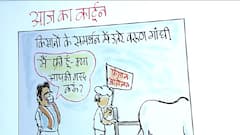 आज का कार्टून
किसानों के समर्थन में उतरे वरुण गांधी
मैं फ्री हूं, क्या
आपकी मदद
करूं?
किसान
आंदोलन